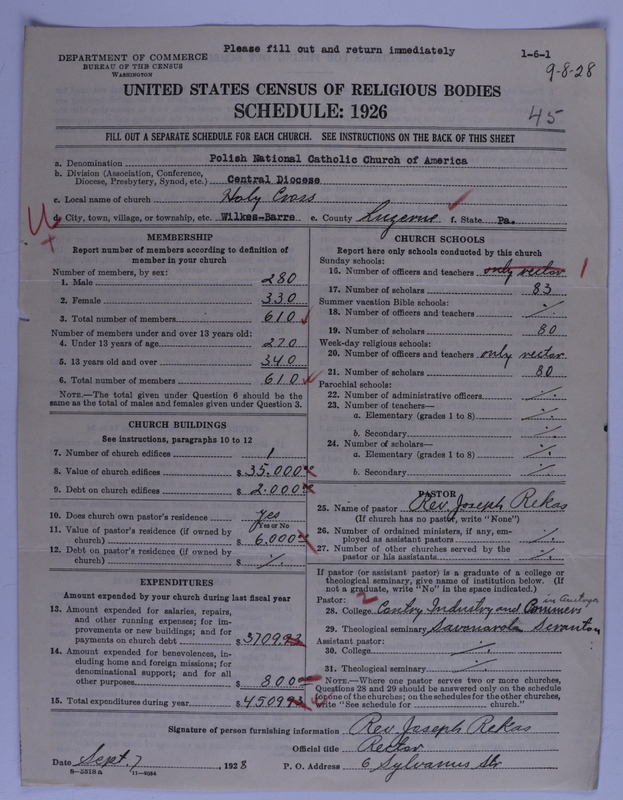 Please fill out and return immediately
1-6-1
9-8-28
DEPARTMENT OF COMMERCE
BUREAU OF THE CENSUS
WASHINGTON
UNITED STATES CENSUS OF RELIGIOUS BODIES
SCHEDULE: 1926
45
FILL OUT A SEPARATE SCHEDULE FOR EACH CHURCH. SEE INSTRUCTIONS ON THE BACK OF THIS SHEET
a. Denomination Polish National Catholic Church of America
b. Division (Association, Conference, Diocese, Presbytery, Synod, etc.) Central Diocese
c. Local name of church Holy Cross
d. City, town, village, or township, etc. Wilkes-Barre e. County Luzerne f. State Pa.
MEMBERSHIP
Report number of members according to definition of
member in your church
Number of members, by sex:
1. Male 280
2. Female 330
3. Total number of members 610
Number of members under and over 13 years old:
4. Under 13 years of age 270
5. 13 years old and over 340
6. Total number of members 610
NOTE.—The total given under Question 6 should be
same as the total of males and females given under Question 3.
CHURCH BUILDINGS
See instructions, paragraphs 10 to 12
7. Number of church edifices 1
8. Value of church edifices $ 35.000
9. Debt on church edifices $ 2.000
10. Does church own pastor's residence yes
Yes or No
11. Value of pastor's residence (if owned by
church) $ 6.000
12. Debt on pastor's residence (if owned by
church) $ ./.
EXPENDITURES
Amount expended by church during last fiscal year
13. Amount expended for salaries, repairs,
and other running expenses; for im-
provements or new buildings; and for
payments on church debt $ 3709.93
14. Amount expended for benevolences, in-
cluding home and foreign missions; for
denominational support; and for all
other purposes $ 800
15. Total expenditures during year $ 4509.93
CHURCH SCHOOLS
Report here only schools conducted by this church
Sunday schools:
16. Number of officers and teachers only rector 1
17. Number of scholars 83
Summer vacation Bible schools:
18. Number of officers and teachers ./.
19. Number of scholars 80
Week-day religious schools:
20. Number of officers and teachers only rector
21. Number of scholars 80
Parochial schools:
22. Number of administrative officers ./.
23. Number of teachers—
a. Elementary (grades 1 to 8) ./.
b. Secondary ./.
24. Number of scholars—
a. Elementary (grades 1 to 8) ./.
b. Secondary ./.
PASTOR
25. Name of pastor Rev. Joseph Rekas
(If church has no pastor, write "None")
26. Number of ordained ministers, if any, em-
ployed as assistant pastors ./.
27. Number of other churches served by the
pastor or his assistants ./.
If pastor (or assistant pastor) is a graduate of a college or
theological seminary, give name of institution below. (If
not a graduate, write "No" in the space indicated.)
Pastor: 2
28. College Industry and Commers in
29. Theological seminary Savonarola Scranton
Assistant pastor:
30. College ./.
31. Theological seminary ./.
NOTE.—Where one pastor serves two or more churches,
Questions 28 and 29 should be answered only on the schedule
for one of the churches; on the schedules for the other churches,
write "See schedule for church."
Signature of person furnishing information Rev. Joseph Rekas
Official title Rector
Date Sept. 7, 1928 P. O. Address 6 Sylvanus Str
8-5518 a 11-9084